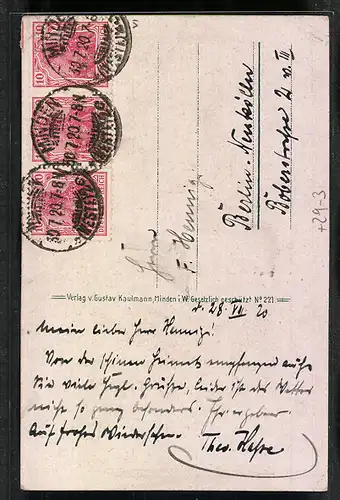 MINDEN
30.7.20.7-8N
Herrn
F. Hennig
Berlin-Neukölln
+29-3
Verlag v. Gustav Kaulmann, Minden i. W. Gesetzlich geschützt No 221.
d. 28. VII. 20
Mein lieber Herr Hennig!
Von der schönen Heimat empfangen auch
Sie viele Grüße, leider ist das Wetter
nicht so ganz besonders. Ihr ergebener
Auf frohes Wiedersehn.
Theo.